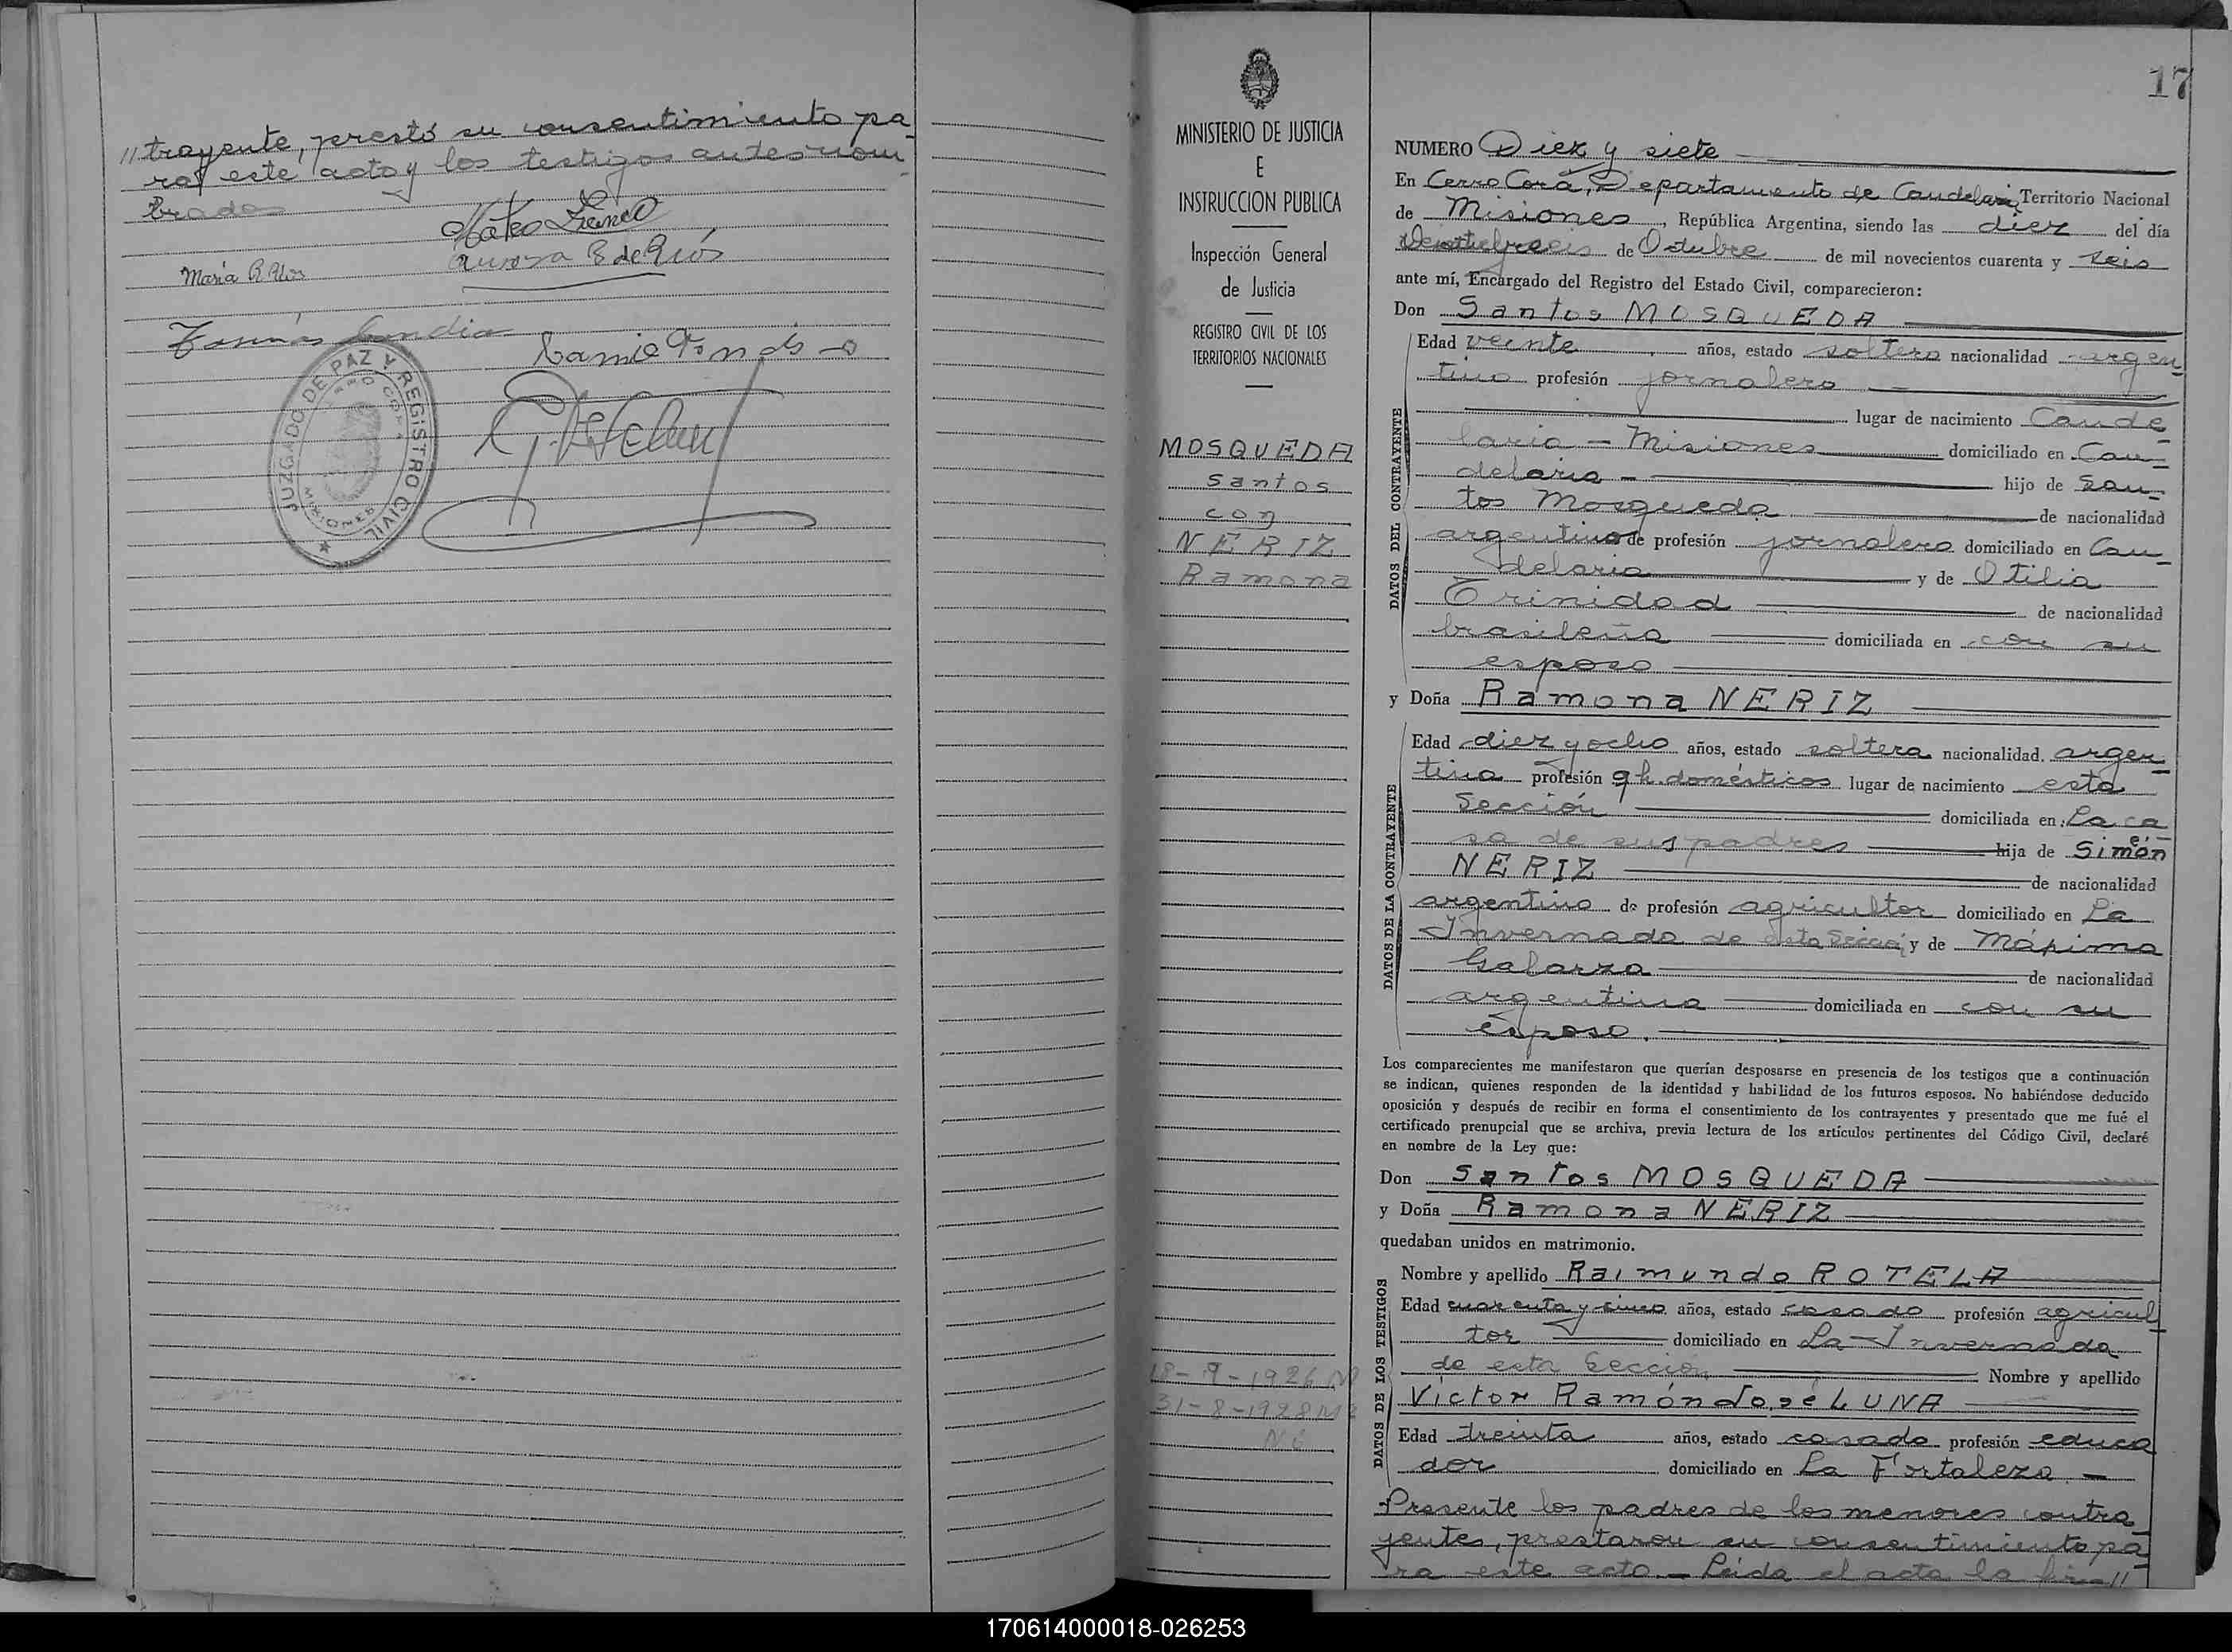 //trayente, prestó su consentimiento pa-
ra este acto y los testigos antes nom-
brados
María R. Ríos
Aurora B de Ríos
Tomás Candia
JUZGADO DE PAZ Y REGISTRO CIVIL
CERRO CORA
MISIONES
MINISTERIO DE JUSTICIA
E
INSTRUCCION PUBLICA
Inspección General
de Justicia
REGISTRO CIVIL DE LOS
TERRITORIOS NACIONALES
MOSQUEDA
Santos
con
NERIZ
Ramona
18-9-1926
31-8-1928
17
NUMERO Diez y siete
En Cerro Corá, Departamento de Candelaria Territorio Nacional
de Misiones, República Argentina, siendo las diez del día
de Octubre de mil novecientos cuarenta y seis
ante mí, Encargado del Registro del Estado Civil, comparecieron:
Don Santos MOSQUEDA
DATOS DEL CONTRAYENTE
Edad veinte años, estado soltero nacionalidad argen-
tino profesión jornalero
lugar de nacimiento Cande-
laria - Misiones domiciliado en Can-
delaria - hijo de San-
tos Mosqueda de nacionalidad
argentino de profesión jornalero domiciliado en Can-
delaria y de Otilia
Trinidad de nacionalidad
brasileña domiciliada en con su
esposo
y Doña Ramona NERIZ
DATOS DE LA CONTRAYENTE
Edad diez y ocho años, estado soltera nacionalidad argen-
tina profesión q h. domésticos lugar de nacimiento esta
Sección domiciliada en La ca-
sa de sus padres hija de Simeón
NERIZ de nacionalidad
argentino de profesión agricultor domiciliado en La
Invernada de esta y de Máxima
Galarza de nacionalidad
argentina domiciliada en con su
esposo.
Los comparecientes me manifestaron que querían desposarse en presencia de los testigos que a continuación
se indican, quienes responden de la identidad y habilidad de los futuros esposos. No habiéndose deducido
oposición y después de recibir en forma el consentimiento de los contrayentes y presentado que me fué el
certificado prenupcial que se archiva, previa lectura de los artículos pertinentes del Código Civil, declaré
en nombre de la Ley que:
Don Santos MOSQUEDA
y Doña Ramona NERIZ
quedaban unidos en matrimonio.
DATOS DE LOS TESTIGOS
Nombre y apellido Raimundo ROTELA
Edad cuarenta y cinco años, estado casado profesión agricul-
tor domiciliado en La Invernada
de esta Sección Nombre y apellido
Víctor Ramón José LUNA
Edad treinta años, estado casado profesión educa
dor domiciliado en La Fortaleza -
Presente los padres de los menores contra-
yentes, prestaron su consentimiento pa-
ra este acto.- Leída el acta la fir//
170614000018-026253